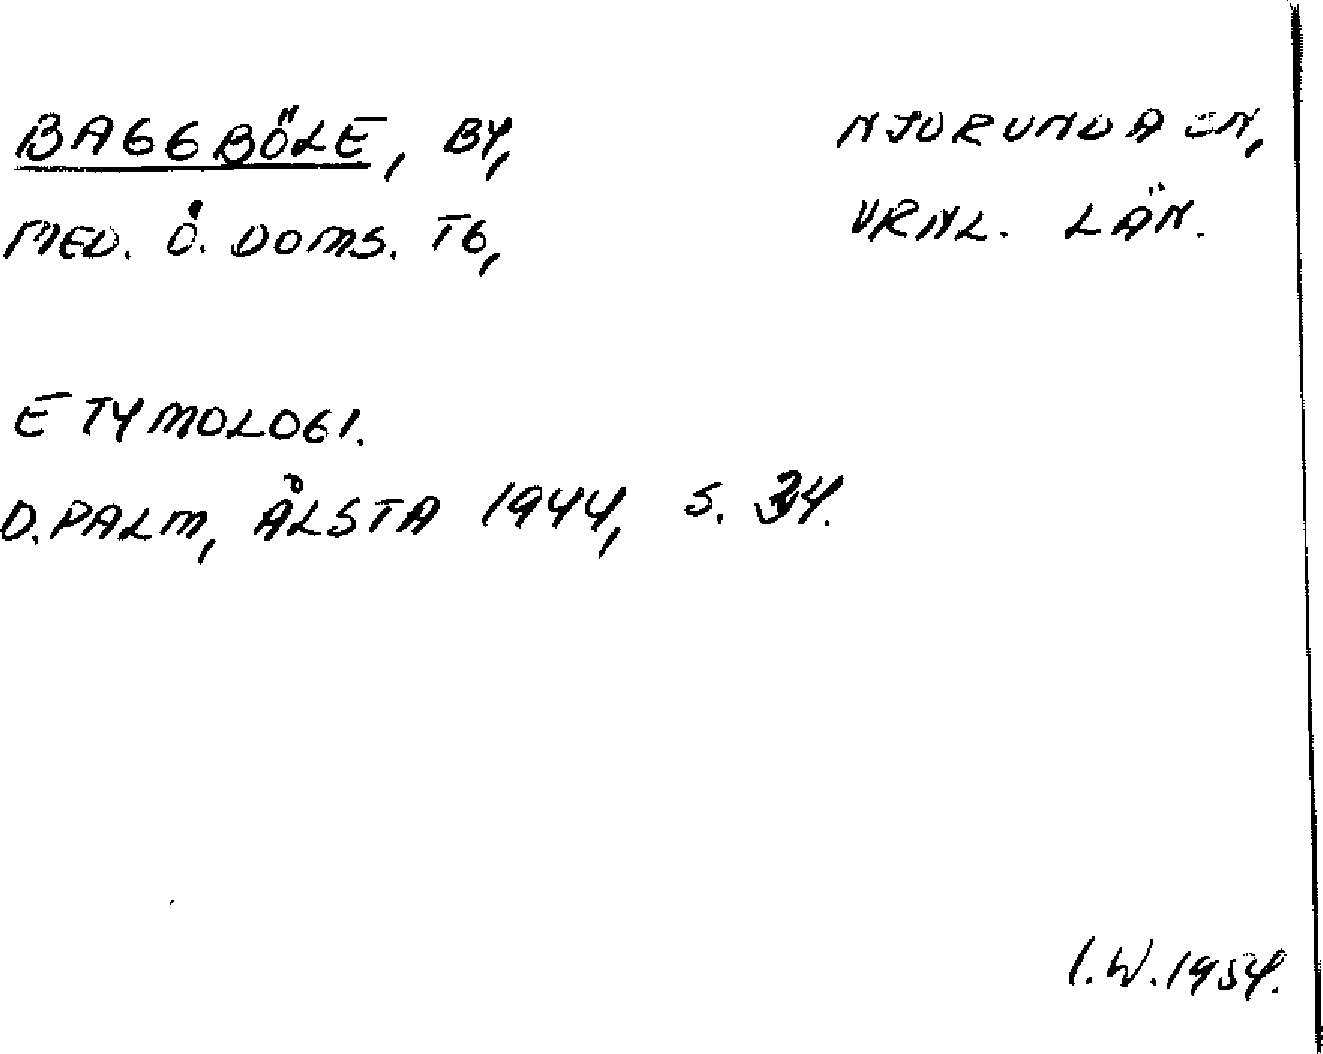 BAGGBÖLE, BY, NJURUNDA SN,
MED. Ö. DOMS. TG, VRNL. LÄN.
ETYMOLOGI.
D. PALM, ÅLSTA 1944, S. 34.
I.W. 1954.